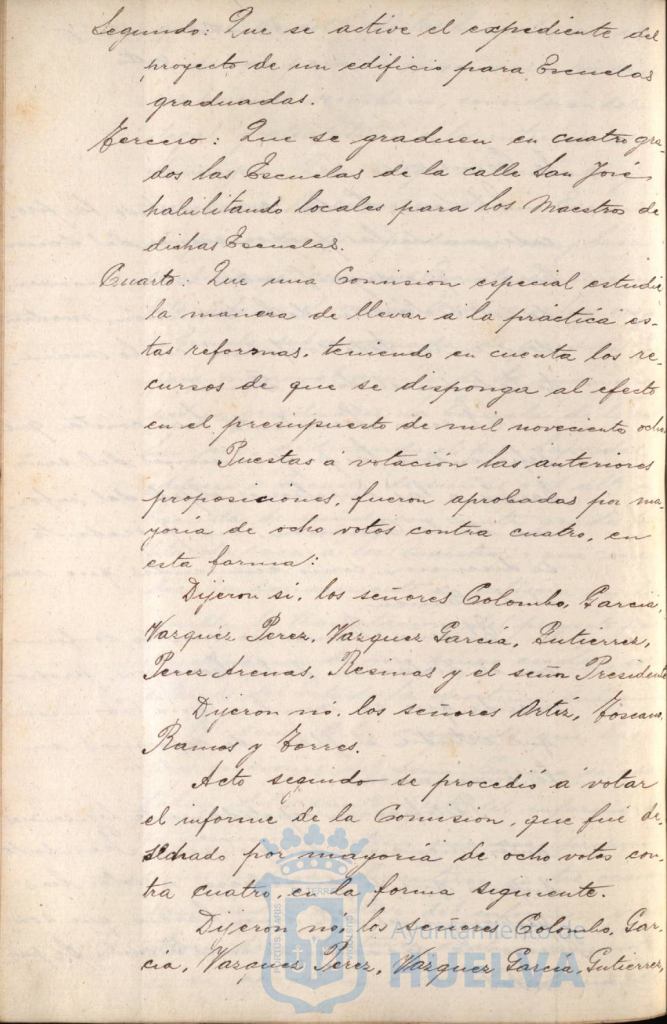 Segundo: Que se active el expediente del
proyecto de un edificio para Escuelas
graduadas.
Tercero: Que se gradúen en cuatro gra-
dos las Escuelas de la calle San José,
habilitando locales para los Maestros de
dichas Escuelas.
Cuarto: Que una Comisión especial estudie
la manera de llevar á la práctica es-
tas reformas, teniendo en cuenta los re-
cursos de que se disponga al efecto
en el presupuesto de mil noveciento ocho
Puestas á votación las anteriores
proposiciones, fueron aprobadas por ma-
yoría de ocho votos contra cuatro, en
esta forma:
Dijeron si, los señores Colombo, García,
Vazquéz Perez, Vazquez García, Gutierrez,
Perez Arenas, Resinas y el señor Presidente
Dijeron nó, los señores Ortíz, Toscano,
Ramos y Torres.
Acto seguido se procedió á votar
el informe de la Comisión, que fué de-
sechado por mayoría de ocho votos con-
tra cuatro, en la forma siguiente.
Dijeron nó, los señores Colombo, Gar-
cía, Vazquez Perez, Vazquez García, Gutierrez,
Ayuntamiento de
HUELVA